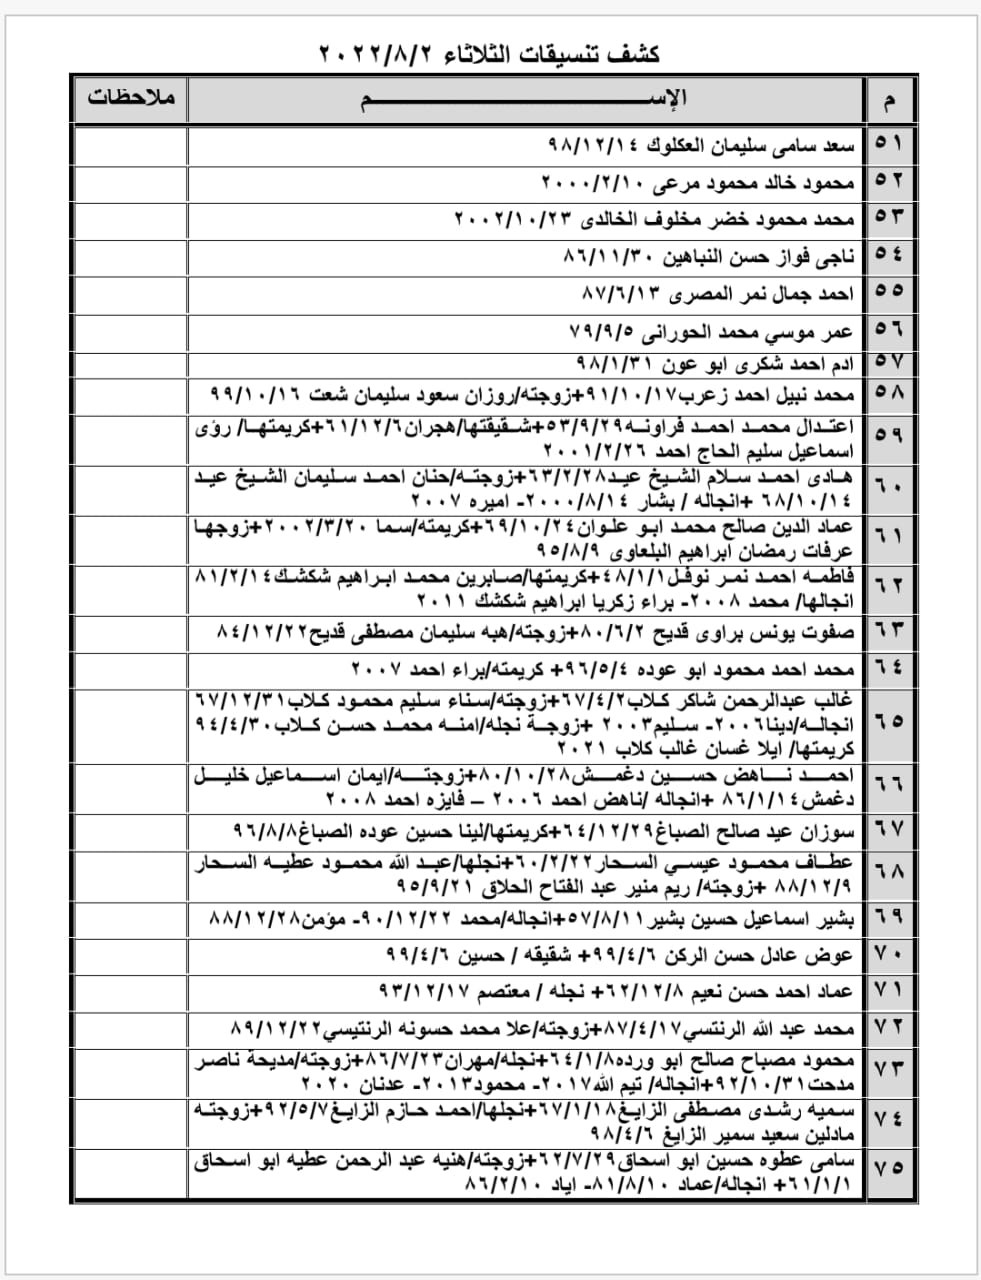 كشف تنسيقات الثلاثاء ٢٠٢٢/٨/٢
م الإســـــــم ملاحظات
٥١ سعد سامى سليمان العكلوك ٩٨/١٢/١٤
٥٢ محمود خالد محمود مرعى ٢٠٠٠/٢/١٠
٥٣ محمد محمود خضر مخلوف الخالدى ٢٠٠٢/١٠/٢٣
٥٤ ناجى فواز حسن النباهين ٨٦/١١/٣٠
٥٥ احمد جمال نمر المصرى ٨٧/٦/١٣
٥٦ عمر موسي محمد الحورانى ٧٩/٩/٥
٥٧ ادم احمد شكرى ابو عون ٩٨/١/٣١
٥٨ محمد نبيل احمد زعرب٩١/١٠/١٧+زوجته/روزان سعود سليمان شعت ٩٩/١٠/١٦
٥٩ اعتدال محمد احمد فراونه٥٣/٩/٢٩+شقيقتها/هجران٦١/١٢/٦+كريمتها/ رؤى
اسماعيل سليم الحاج احمد ٢٠٠١/٢/٢٦
٦٠ هادى احمد سلام الشيخ عيد٦٣/٢/٢٨+زوجته/حنان احمد سليمان الشيخ عيد
٦٨/١٠/١٤ +انجاله / بشار ٢٠٠٠/٨/١٤- اميره ٢٠٠٧
٦١ عماد الدين صالح محمد ابو علوان٦٩/١٠/٢٤+كريمته/سما ٢٠٠٢/٣/٢٠+زوجها
عرفات رمضان ابراهيم البلعاوى ٩٥/٨/٩
٦٢ فاطمه احمد نمر نوفل٤٨/١/١+كريمتها/صابرين محمد ابراهيم شكشك٨١/٢/١٤
انجالها/ محمد ٢٠٠٨- براء زكريا ابراهيم شكشك ٢٠١١
٦٣ صفوت يونس براوى قديح ٨٠/٦/٢+زوجته/هبه سليمان مصطفى قديح٨٤/١٢/٢٢
٦٤ محمد احمد محمود ابو عوده ٩٦/٥/٤+ كريمته/براء احمد ٢٠٠٧
٦٥ غالب عبدالرحمن شاكر كلاب٦٧/٤/٢+زوجته/سناء سليم محمود كلاب٦٧/١٢/٣١
انجاله/دينا٢٠٠٦- سليم٢٠٠٣ +زوجة نجله/امنه محمد حسن كلاب٩٤/٤/٣٠
كريمتها/ ايلا غسان غالب كلاب ٢٠٢١
٦٦ احمد ناهض حسين دغمش٨٠/١٠/٢٨+زوجته/ايمان اسماعيل خليل
دغمش٨٦/١/١٤ +انجاله /ناهض احمد ٢٠٠٦ – فايزه احمد ٢٠٠٨
٦٧ سوزان عيد صالح الصباغ٦٤/١٢/٢٩+كريمتها/لينا حسين عوده الصباغ٩٦/٨/٨
٦٨ عطاف محمود عيسي السحار٦٠/٢/٢٢+نجلها/عبد الله محمود عطيه السحار
٨٨/١٢/٩ +زوجته/ ريم منير عبد الفتاح الحلاق ٩٥/٩/٢١
٦٩ بشير اسماعيل حسين بشير٥٧/٨/١١+انجاله/محمد ٩٠/١٢/٢٢- مؤمن٨٨/١٢/٢٨
٧٠ عوض عادل حسن الركن ٩٩/٤/٦+ شقيقه / حسين ٩٩/٤/٦
٧١ عماد احمد حسن نعيم ٦٢/١٢/٨+ نجله / معتصم ٩٣/١٢/١٧
٧٢ محمد عبد الله الرنتسي٨٧/٤/١٧+زوجته/علا محمد حسونه الرنتيسي٨٩/١٢/٢٢
٧٣ محمود مصباح صالح ابو ورده٦٤/١/٨+نجله/مهران٨٦/٧/٢٣+زوجته/مديحة ناصر
مدحت٩٢/١٠/٣١+انجاله/ تيم الله٢٠١٧- محمود٢٠١٣- عدنان ٢٠٢٠
٧٤ سميه رشدى مصطفى الزايغ٦٧/١/١٨+نجلها/احمد حازم الزايغ٩٢/٥/٧+زوجته
مادلين سعيد سمير الزايغ ٩٨/٤/٦
٧٥ سامى عطوه حسين ابو اسحاق٦٢/٧/٢٩+زوجته/هنيه عبد الرحمن عطيه ابو اسحاق
٦١/١/١+ انجاله/عماد ٨١/٨/١٠- اياد ٨٦/٢/١٠